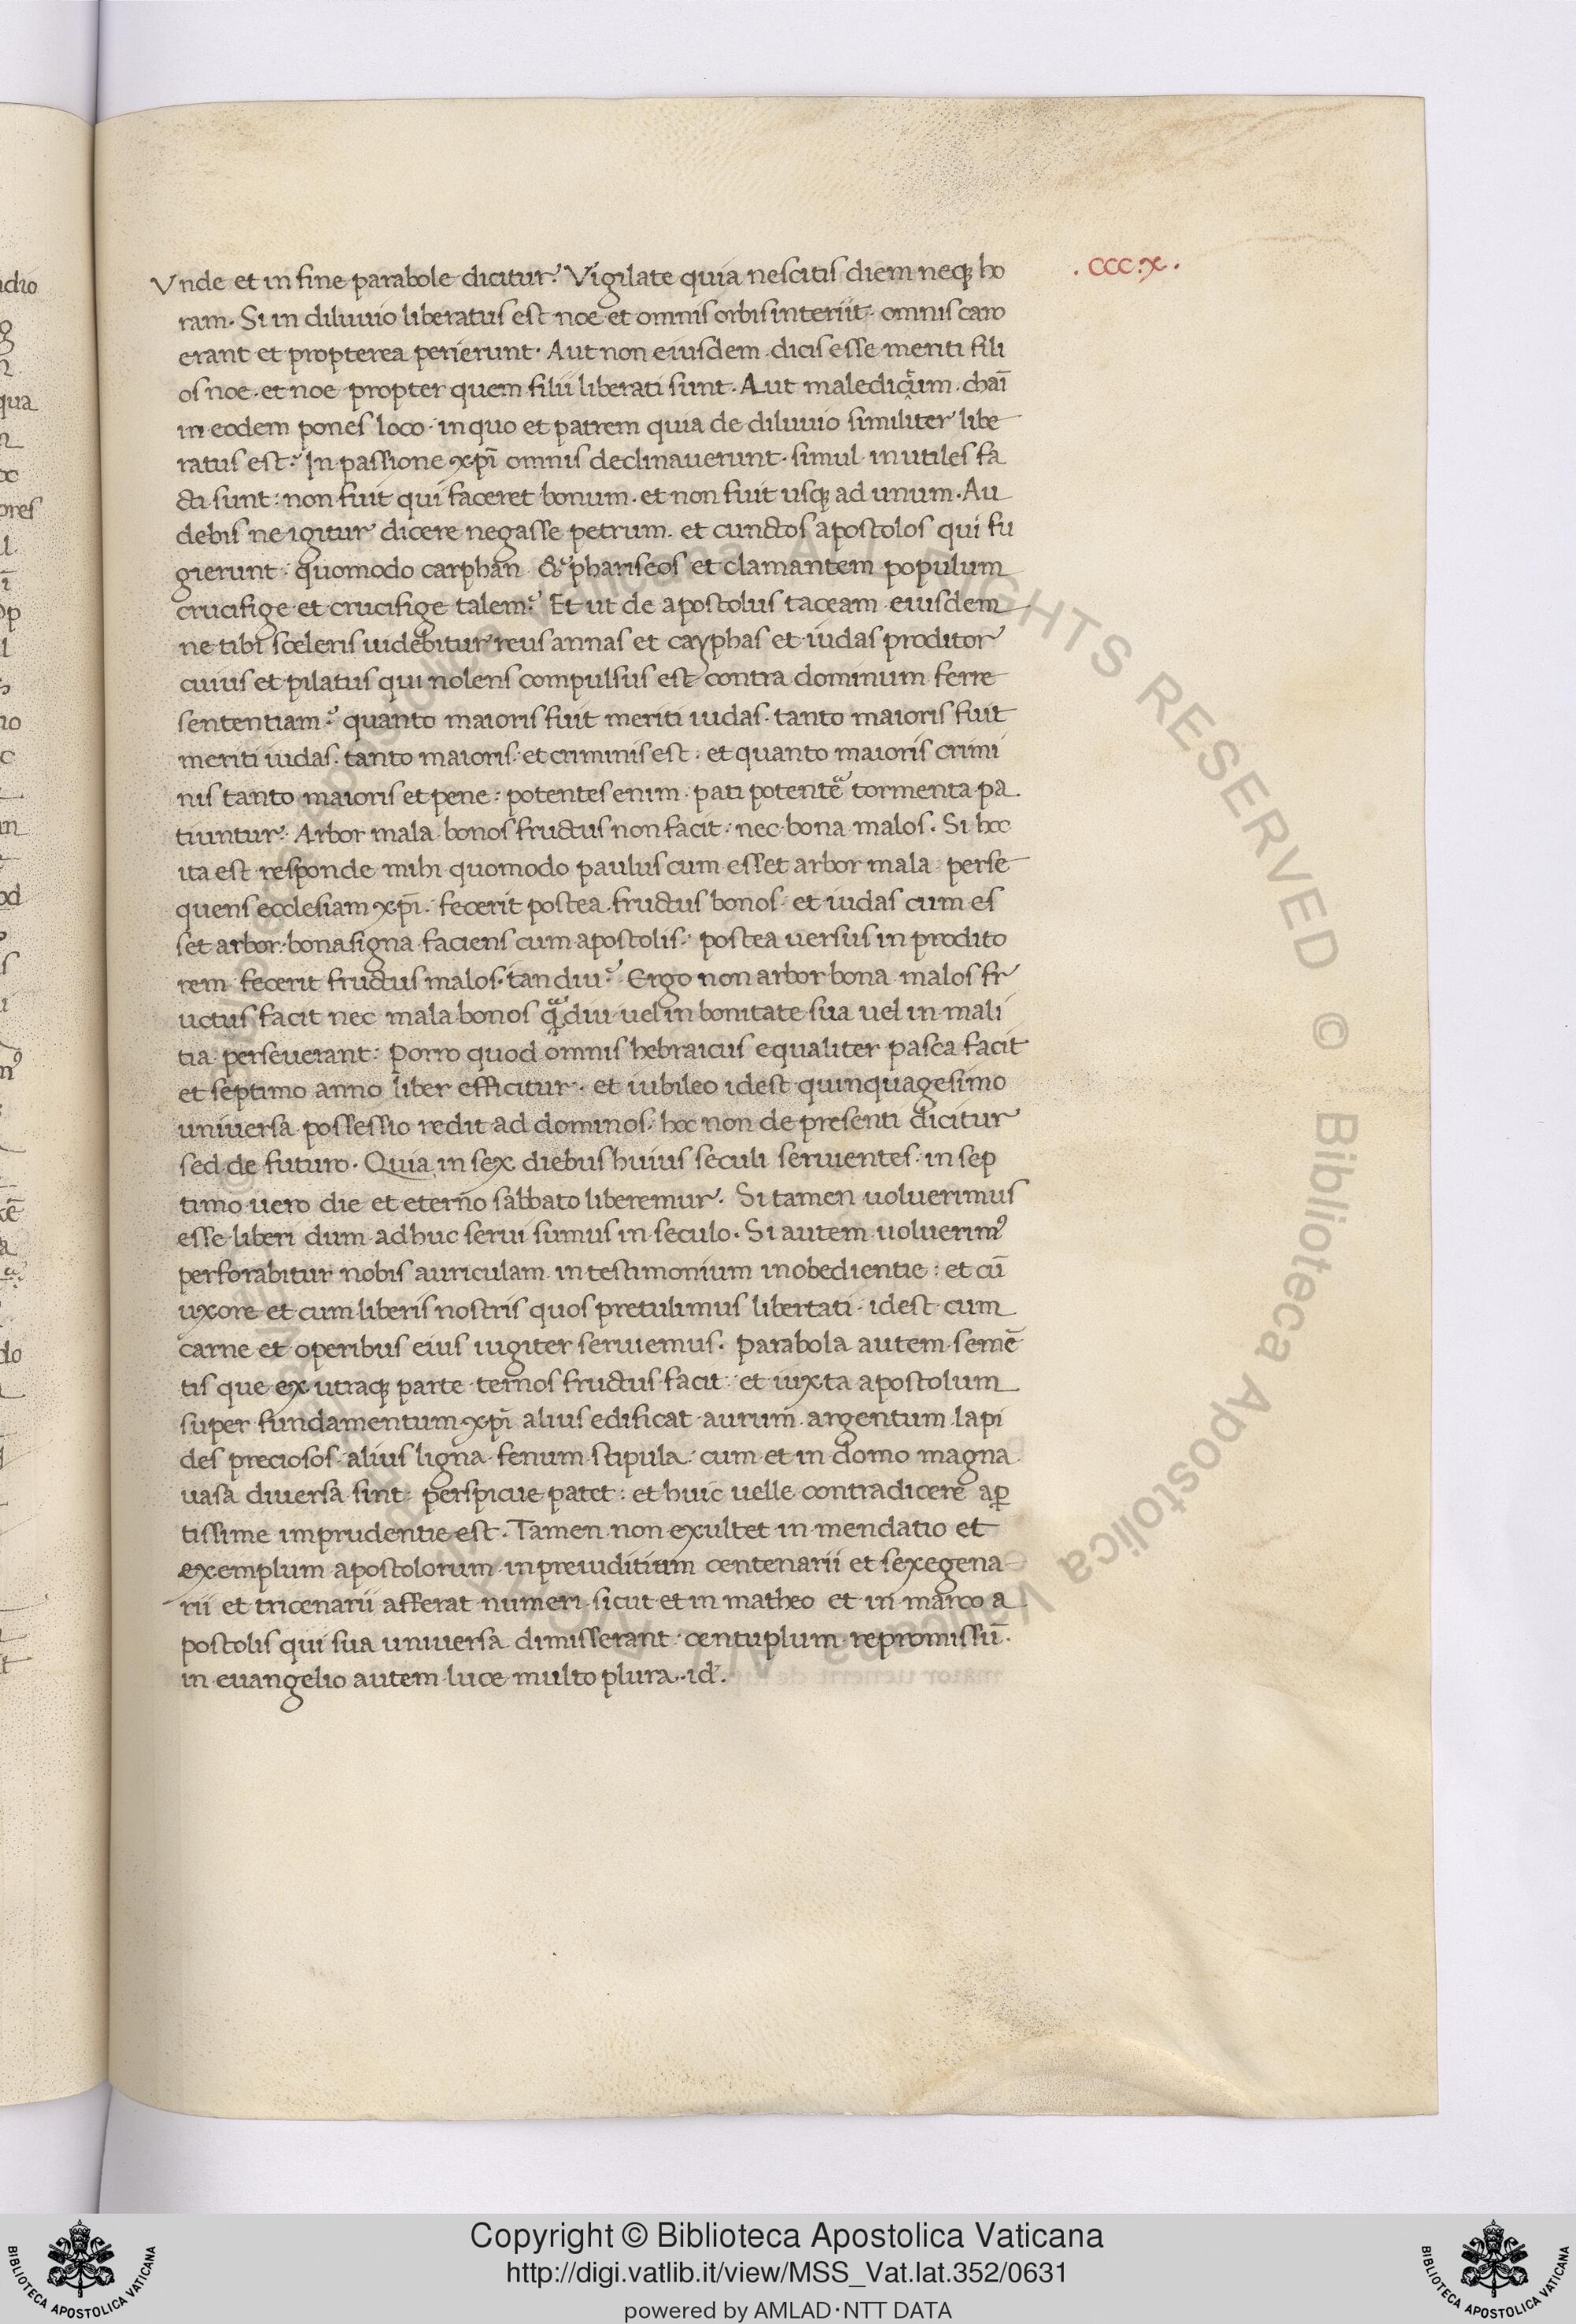 .ccc.x.
Vnde et in fine parabole dicitur. Vigilate quia nescitis diem neq; ho
ram. Si in diluuio liberatus est noe et omnis orbis interiit. omnis caro
erant et propterea perierunt. Aut non eiusdem dicis esse meriti fili
os noe. et noe propter quem filii liberati sunt. Aut maledictum chaī
in eodem pones loco. in quo et patrem quia de diluuio similiter libe
ratus est? In passione xpī omnis declinauerunt. simul inutiles fa
cti sunt: non fuit qui faceret bonum. et non fuit usq; ad unum. Au
debis ne igitur dicere negasse petrum. et cunctos apostolos qui fu
gierunt: quomodo carphan & phariseos et clamantem populum
crucifige et crucifige talem? Et ut de apostolus taceam eiusdem
ne tibi sceleris uidebitur reus annas et cayphas et iudas proditor
cuius et pilatus qui nolens compulsus est contra dominum ferre
sententiam? quanto maioris fuit meriti iudas. tanto maioris fuit
meriti iudas. tanto maioris et criminis est. et quanto maioris crimi
nis tanto maioris et pene: potentes enim pati potentē tormenta pa
tiuntur. Arbor mala bonos fructus non facit: nec bona malos. Si hoc
ita est responde mihi quomodo paulus cum esset arbor mala perse
quens ecclesiam xpī. fecerit postea fructus bonos. et iudas cum es
set arbor: bona signa faciens cum apostolis: postea uersus in prodito
rem fecerit fructus malos. tan diu? Ergo non arbor bona malos fr
uctus facit nec mala bonos qͣ̄diu uel in bonitate sua uel in mali
tia perseuerant: Porro quod omnis hebraicus equaliter pasca facit
et septimo anno liber efficitur. et iubileo idest quinquagesimo
uniuersa possessio redit ad dominos. hoc non de presenti dicitur
sed de futuro. Quia in sex diebus huius seculi seruientes. in sep
timo uero die et eterno sabbato liberemur. Si tamen uoluerimus
esse liberi dum adhuc serui sumus in seculo. Si autem uoluerim⁹
perforabitur nobis auriculam in testimonium inobedientie: et cū
uxore et cum liberis nostris quos pretulimus libertati. idest cum
carne et operibus eius iugiter seruiemus. Parabola autem semē
tis que ex utraq; parte ternos fructus facit: et iuxta apostolum
super fundamentum xpī alius edificat aurum argentum lapi
des preciosos. alius ligna fenum stipula. cum et in domo magna
uasa diuersa sint: perspicue patet: et huic uelle contradicere aꝑ
tissime imprudentie est. Tamen non exultet in mendatio et
exemplum apostolorum in preiuditium centenarii et sexegena
rii et tricenarii afferat numeri sicut et in matheo et in marco a
postolis qui sua uniuersa dimisserant centuplum repromissū.
in euangelio autem luce multo plura. id.
© Biblioteca Apostolica Vaticana ALL RIGHTS RESERVED
BIBLIOTECA APOSTOLICA VATICANA
Copyright © Biblioteca Apostolica Vaticana
http://digi.vatlib.it/view/MSS_Vat.lat.352/0631
powered by AMLAD·NTT DATA
BIBLIOTECA APOSTOLICA VATICANA